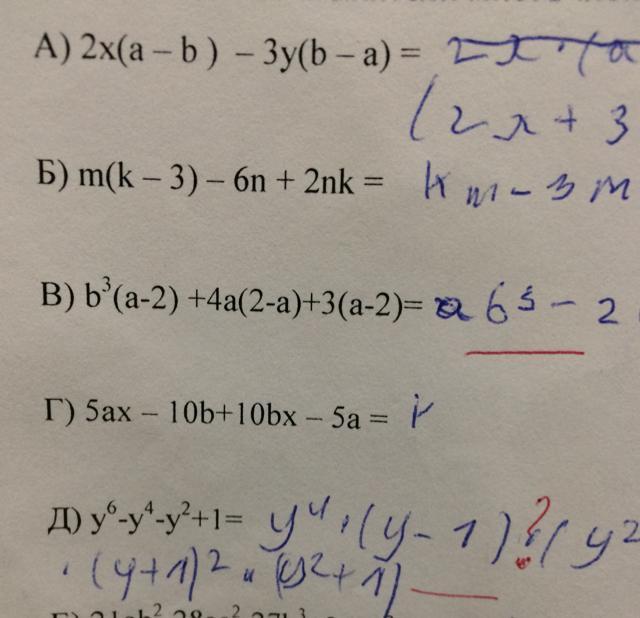 А) 2x(a – b ) – 3y(b – a) =
(2x + 3
Б) m(k – 3) – 6n + 2nk = km – 3m
В) b³(a-2) +4a(2-a)+3(a-2)= ab³ – 2
Г) 5ax – 10b+10bx – 5a =
Д) y⁶-y⁴-y²+1= y⁴·(y – 1) ? (y²
· (y+1)² · (y²+1)